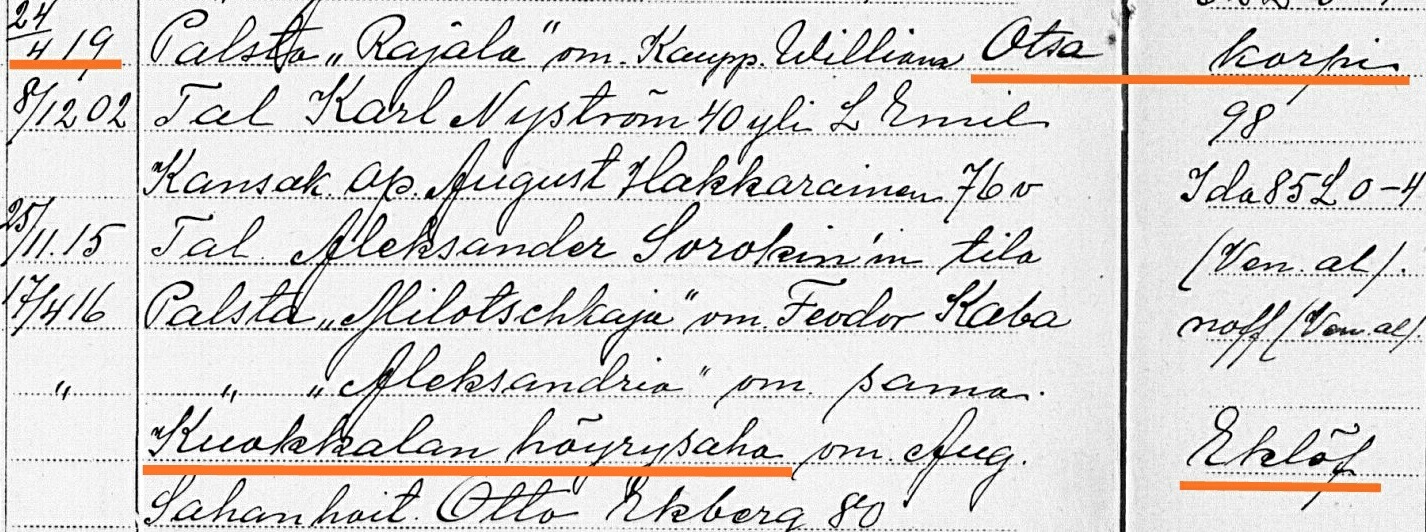 24/4 19 Palsta „Rajala" om. Kaupp. William Otsa korpi
8/12 02 Tal Karl Nyström 40 yli L Emil 98
Kansak. op. August Hakkarainen 76 v Ida 85 L 0-4
25/11.15 Tal. Aleksander Sorokin'in tila (Ven. al).
17/4 16 Palsta „Milotschkaja" om. Feodor Kaba noff (Ven. al).
„ „ „Aleksandria" om. sama.
Kuokkalan höyrysaha om. Aug. Eklöf
Sahanhoit. Otto Ekberg 80